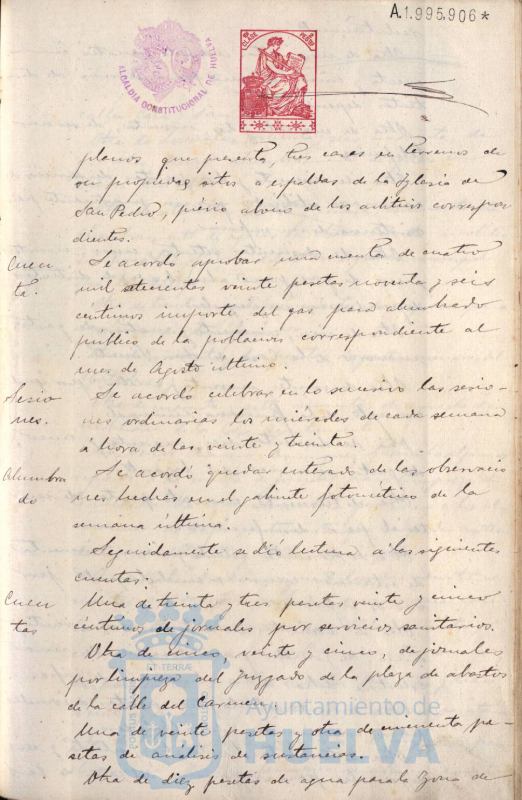 A.1.995,906*
ALCALDIA CONSTITUCIONAL DE HUELVA
planos que presenta, tres casas en terrenos de
su propiedad sitos a espaldas de la Iglesia de
San Pedro, previo abono de los arbitrios correspon
dientes.
Cuen
ta.
Se acordó aprobar una cuenta de cuatro
mil setecientas veinte pesetas noventa y seis
céntimos importe del gas para alumbrado
público de la poblacion correspondiente al
mes de Agosto último.
Sesio
nes.
Se acordó celebrar en lo sucesivo las sesio-
nes ordinarias los miércoles de cada semana
á hora de las veinte y treinta.
Alumbra
do
Se acordó quedar enterado de las observacio
nes hechas en el gabinete fotométrico de la
semana última.
Seguidamente se dió lectura á las siguientes
cuentas.
Cuen
tas
Una de treinta y tres pesetas veinte y cinco
céntimos de jornales por servicios sanitarios.
Otra de cinco, veinte y cinco, de jornales
por limpieza del juzgado de la plaza de abastos
de la calle del Carmen.
Una de veinte pesetas y otra de cincuenta pe-
setas de análisis de sustancias.
Otra de diez pesetas de agua para la zona de
Ayuntamiento de
HUELVA